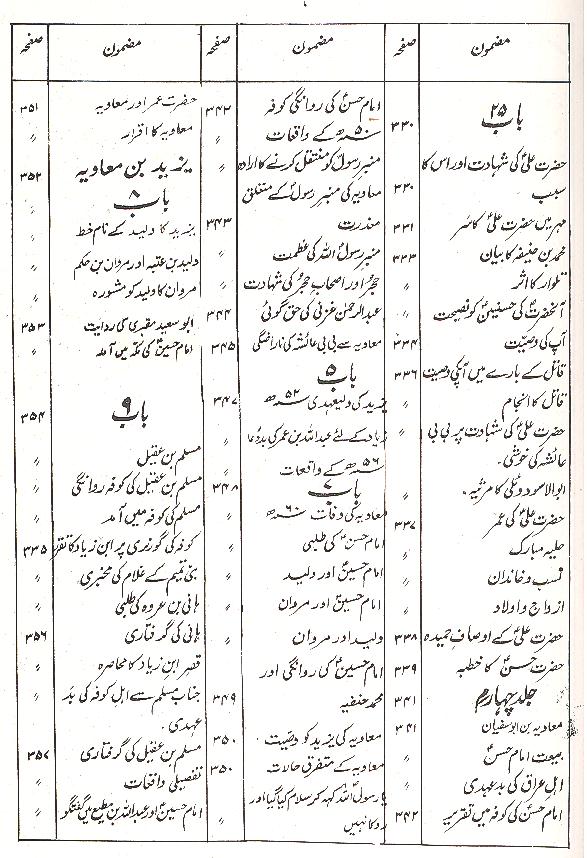 مضمون
صفحہ
باب ۲۵
۳۳۰
حضرت علیؑ کی شہادت اور اس کا
۳۳۰
سبب
مہر میں حضرت علیؑ کا سر
۳۳۱
محمد بن حنیفہ کا بیان
۳۳۳
تلوار کا اثر
〃
آنحضرتؐ کی حسنینؑ کو نصیحت
آپ کی وصیت
۳۳۴
قاتل کے بارے میں آپکی وصیت
۳۳۶
قاتل کا انجام
〃
حضرت علیؑ کی شہادت پر بی بی
〃
عائشہ کی خوشی۔
ابوالاسود دوئلی کا مرثیہ۔
〃
حضرت علیؑ کی عمر
۳۳۷
حلیہ مبارک
〃
نسب و خاندان
〃
ازواج و اولاد
〃
حضرت علیؑ کے اوصاف حمیدہ
۳۳۸
حضرت حسنؑ کا خطبہ
۳۳۹
جلد چہارم
۳۴۱
معاویہ بن ابوسفیان
۳۴۱
بیعت امام حسنؑ
〃
اہل عراق کی بدعہدی
〃
امام حسنؑ کی کوفہ میں تقریر
۳۴۲
مضمون
صفحہ
امام حسنؑ کی روانگی کوفہ
۳۴۲
۵۰ھ کے واقعات
〃
منبر رسولؐ کو منتقل کرنے کا ارادہ
〃
معاویہ کی منبر رسولؐ کے متعلق
معذرت
۳۴۳
منبر رسولؐ اللہ کی عظمت
〃
حجرؓ اور اصحاب حجرؓ کی شہادت
〃
عبدالرحمٰن غزنی کی حق گوئی
۳۴۴
معاویہ سے بی بی عائشہ کی ناراضگی
۳۴۵
باب ۵
یزید کی ولیعہدی ۵۲ھ
۳۴۷
زیاد کے لئے عبداللہ بن عمر کی بددعا
۵۶ھ کے واقعات
〃
باب ۷
۳۴۸
معاویہ کی وفات ۶۰ھ
〃
امام حسینؑ کی طلبی
〃
امام حسینؑ اور ولید
〃
امام حسینؑ اور مروان
〃
ولید اور مروان
〃
امام حسینؑ کی روانگی اور
〃
محمد حنفیہ
۳۴۹
معاویہ کی یزید کو وصیت
۳۵۰
معاویہ کے متفرق حالات
۳۵۰
یا رسولؐ اللہ کہہ کر سلام کیا گیا اور
〃
روکا نہیں
مضمون
صفحہ
حضرت عمر اور معاویہ
۳۵۱
معاویہ کا اقرار
〃
یزید بن معاویہ
۳۵۲
باب ۸
〃
یزید کا ولید کے نام خط
〃
ولید بن عتبہ اور مروان بن حکم
〃
مروان کا ولید کو مشورہ
〃
ابو سعید مقبری کی روایت
۳۵۳
امام حسینؑ کی مکہ میں آمد
〃
باب ۹
۳۵۴
مسلم بن عقیل
〃
مسلم بن عقیل کی کوفہ روانگی
〃
مسلم کی کوفہ میں آمد
〃
کوفہ کی گورنری پر ابن زیاد کا تقرر
۳۳۵
بنی تمیم کے غلام کی مخبری
〃
ہانی بن عروہ کی طلبی
〃
ہانی کی گرفتاری
۳۵۶
قصر ابن زیاد کا محاصرہ
〃
جناب مسلم سے اہل کوفہ کی بد
〃
عہدی۔
مسلم بن عقیل کی گرفتاری
۳۵۷
تفصیلی واقعات
〃
امام حسینؑ اور عبداللہ بن مطیع میں گفتگو
〃